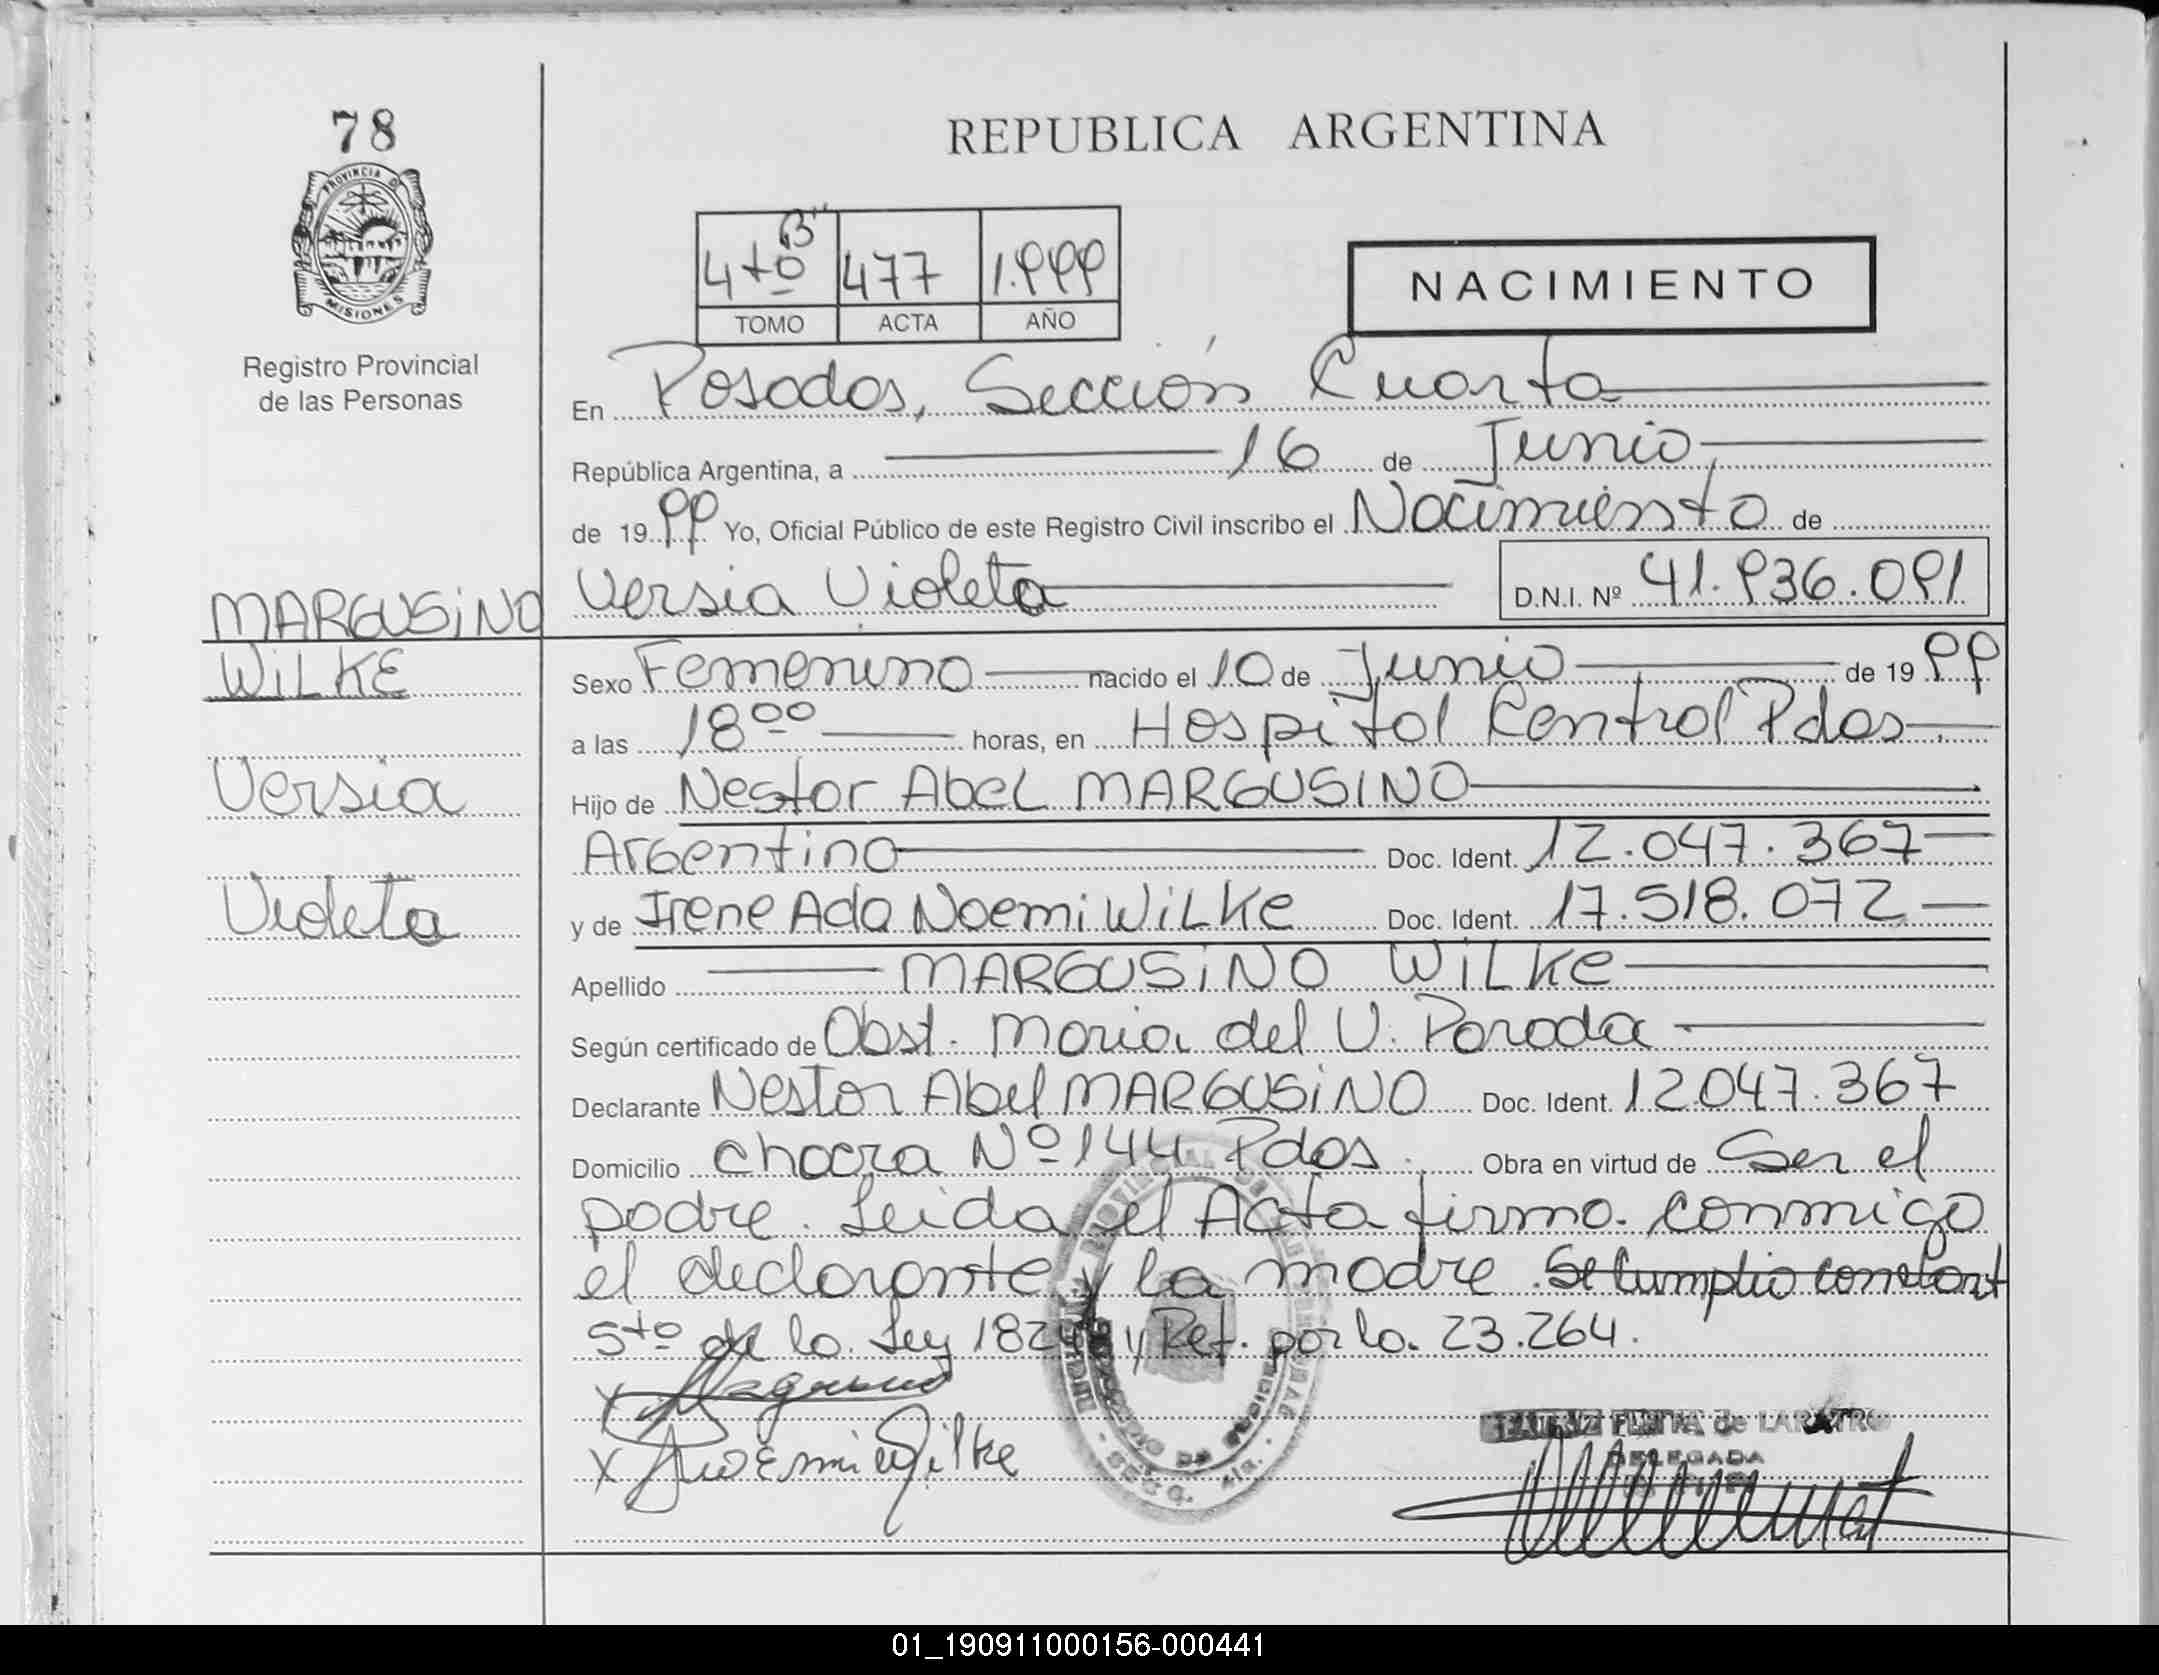 78
PROVINCIA D
MISIONES
Registro Provincial
de las Personas
REPUBLICA ARGENTINA
4to "B" 477 1.999
TOMO ACTA AÑO
NACIMIENTO
En Posadas, Sección Cuarta
República Argentina, a 16 de Junio,
de 1999 Yo, Oficial Público de este Registro Civil inscribo el Nacimiento de
MARGUSINO Versia Violeta D.N.I. Nº 41.936.091
WILKE Sexo Femenino nacido el 10 de Junio de 1999
a las 18 00 horas, en Hospital Central Pdas
Versia Hijo de Nestor Abel MARGUSINO
Argentino Doc. Ident. 12.047.367
Violeta y de Irene Ada Noemi WILKE Doc. Ident. 17.518.072
Apellido MARGUSINO WILKE
Según certificado de Obst. Maria del V. Parada
Declarante Nestor Abel MARGUSINO Doc. Ident. 12.047.367
Domicilio chacra Nº 144 Pdas. Obra en virtud de Ser el
padre. Leida el Acta firma conmigo
el declarante y la madre. Se cumplio con el art
5to de la Ley 18248 y Ref. por la 23.264.
X
X Noemi Wilke
BEATRIZ de
DELEGADA
01_190911000156-000441